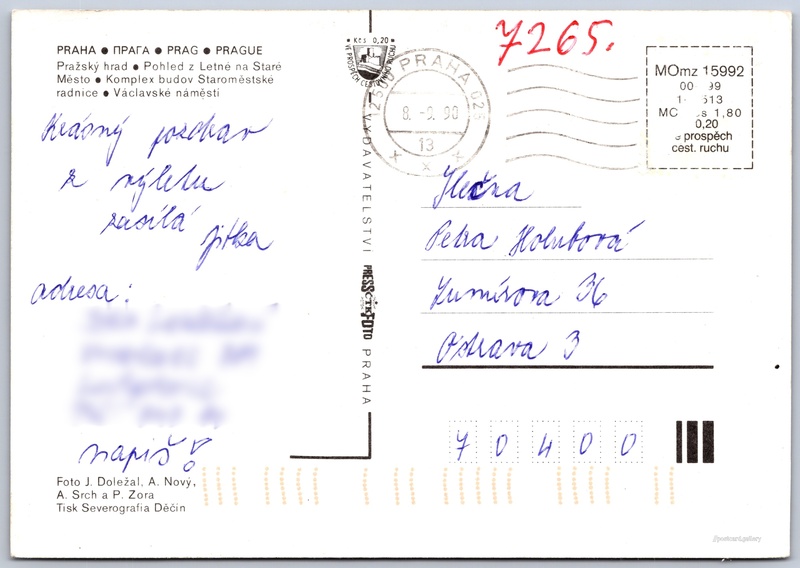 PRAHA ● ПРАГА ● PRAG ● PRAGUE
Pražský hrad ● Pohled z Letné na Staré
Město ● Komplex budov Staroměstské
radnice ● Václavské náměstí
Krásný pozdrav
z výletu
zasílá
Jitka
adresa:
napiš!
Foto J. Doležal, A. Nový,
A. Srch a P. Zora
Tisk Severografia Děčín
Kčs 0,20
VE PROSPĚCH CESTOVNÍHO RUCHU
VYDAVATELSTVÍ
PRESSFOTO
PRAHA
PRAHA 025
8.-9.90
13
7265.
MOmz 15992
00 99
1- 613
MC s 1,80
0,20
e prospěch
cest. ruchu
Slečna
Petra Holubová
Zumírova 36
Ostrava 3
7 0 4 0 0
//postcard.gallery